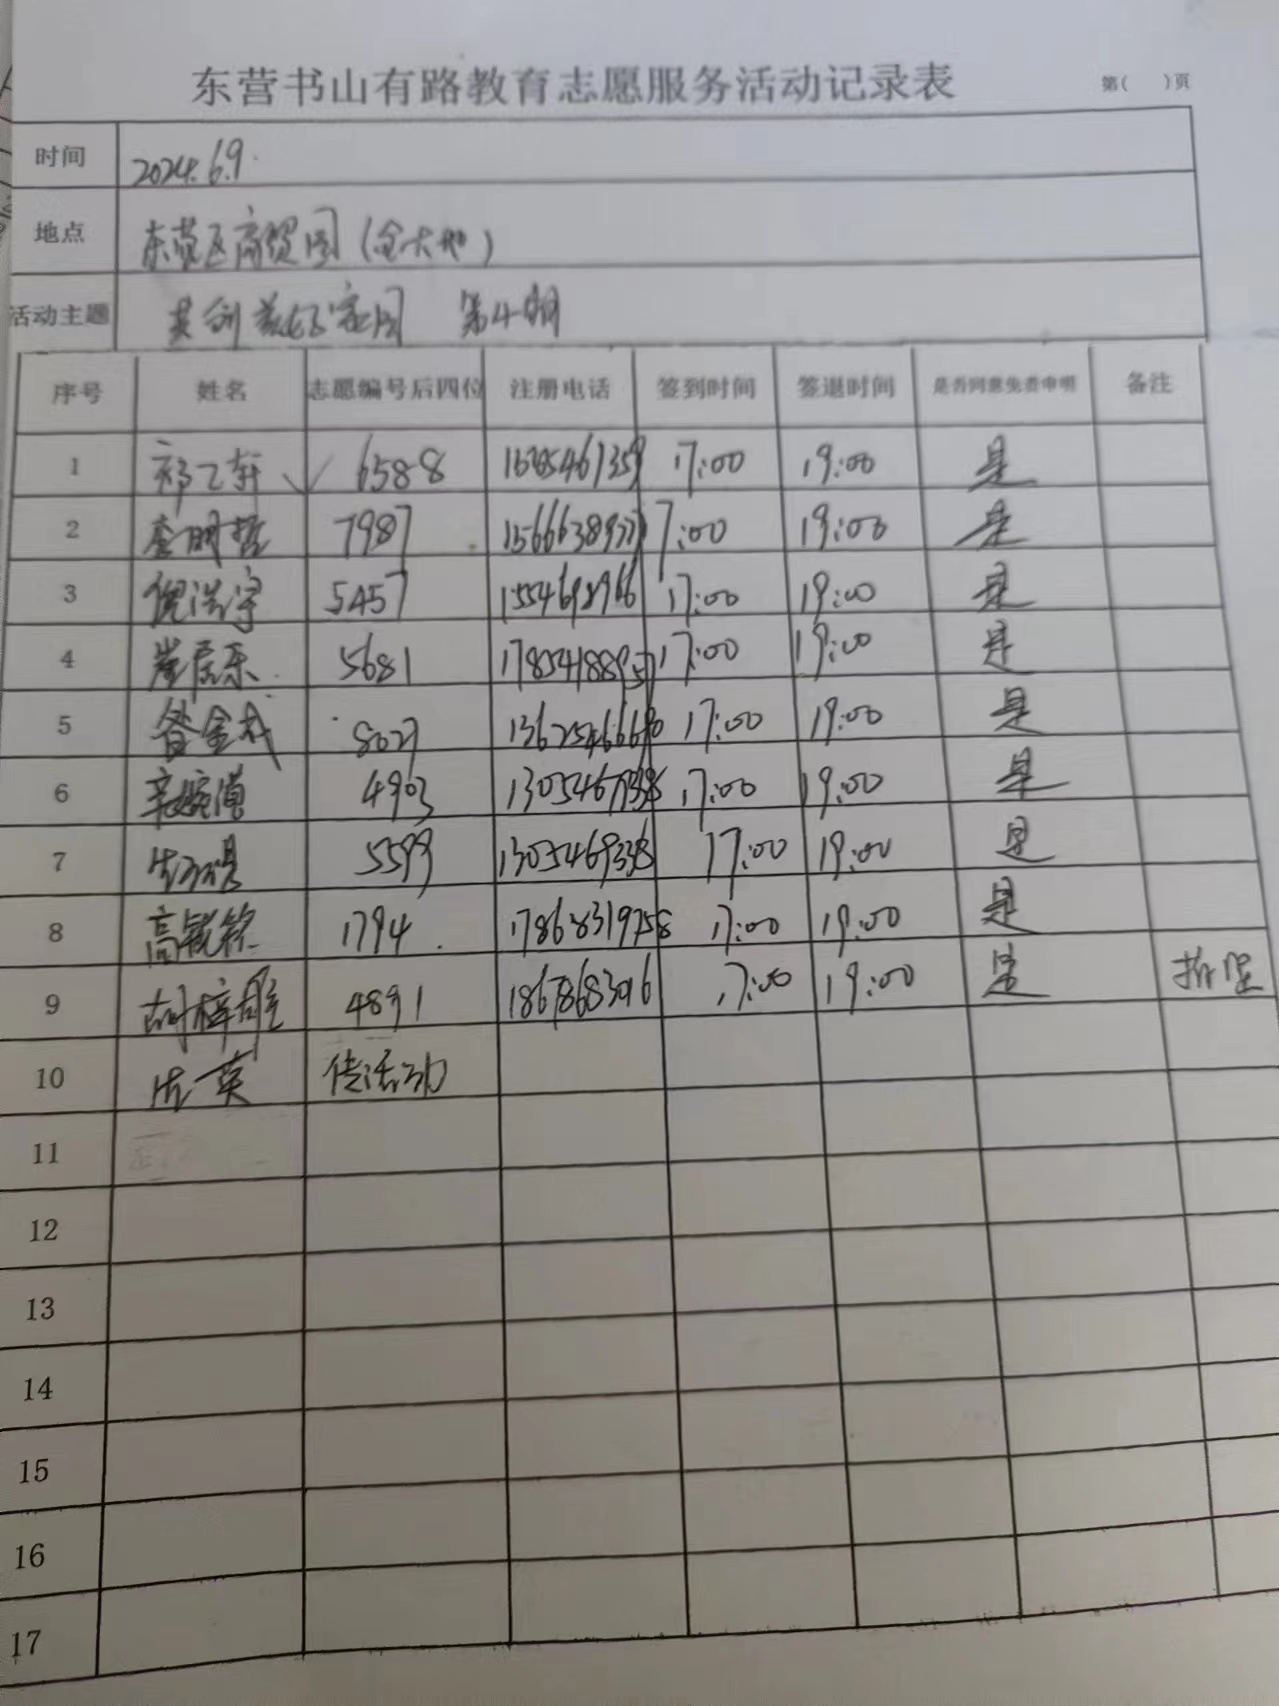 东营书山有路教育志愿服务活动记录表 第( )页
时间 2024.6.9.
地点 东营区商贸园（金大地）
活动主题 共创美好家园 第4期
序号 姓名 志愿编号后四位 注册电话 签到时间 签退时间 是否同意免责申明 备注
1 祁乙轩 ✓ 6588 17:00 19:00 是
2 李明哲 7987 17:00 19:00 是
3 倪浩宇 5457 17:00 19:00 是
4 崔居乐 5681 17:00 19:00 是
5 昝金成 8027 13625466690 17:00 19:00 是
6 4903 17:00 19:00 是
7 5599 1305469338 17:00 19:00 是
8 高锐铭 1794 17868319758 17:00 19:00 是
9 胡梓 4891 17:00 19:00 是
10 英 传活动
11
12
13
14
15
16
17